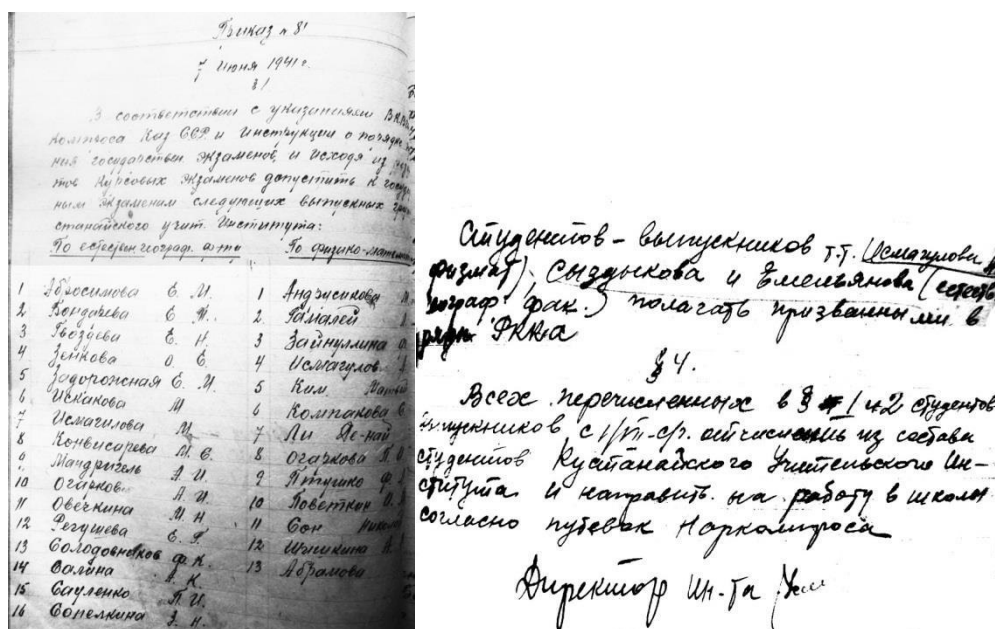 Приказ № 81
7 Июня 1941 г.
§1
В соответствии с указаниям
Компроса Каз ССР и Инструкции о порядке
ния государствен экзаменов, и исходя из
тов курсовых экзаменов допустить к
ным экзаменам следующих выпускных
станайского учит. Института:
По естествен географ. ф-ту
1 Абросимова Е. М.
2 Бондарева Е.
3 Гвоздева Е. Н.
4 Зенкова О. Е.
5 Задорожная Е. И.
6 Искакова М
7 Исмагилова М
8 Конвисарева М. Е.
9 Мандригель А. И.
10 Огарков А. И.
11 Овечкина М. Н
12 Регушева Е. Г.
13 Солодовников Ф. К.
14 Салина А. К.
15 Сауленко П. И.
16 Сопелкина З. Н.
По физико-математ
1 Андрусикова
2 Гамалей
3 Зайнуллина
4 Исмагулов
5 Ким
6 Колпакова
7 Ли
8 Огаркова
9 Птушко Ф.
10 Поветкин
11 Сон
12 Шишкина
13 Абрамова
Студентов - выпускников т.т. Исмагулова
физмат), Сыздыкова и Емельянова (естеств
географ. фак.) полагать призванными в
ряды РККА
§ 4.
Всех перечисленных в § 1 и 2 студентов
выпускников с отчислить из состава
студентов Кустанайского Учительского Ин-
ститута и направить на работу в школы
согласно путевок Наркомпроса
Директор ин-та